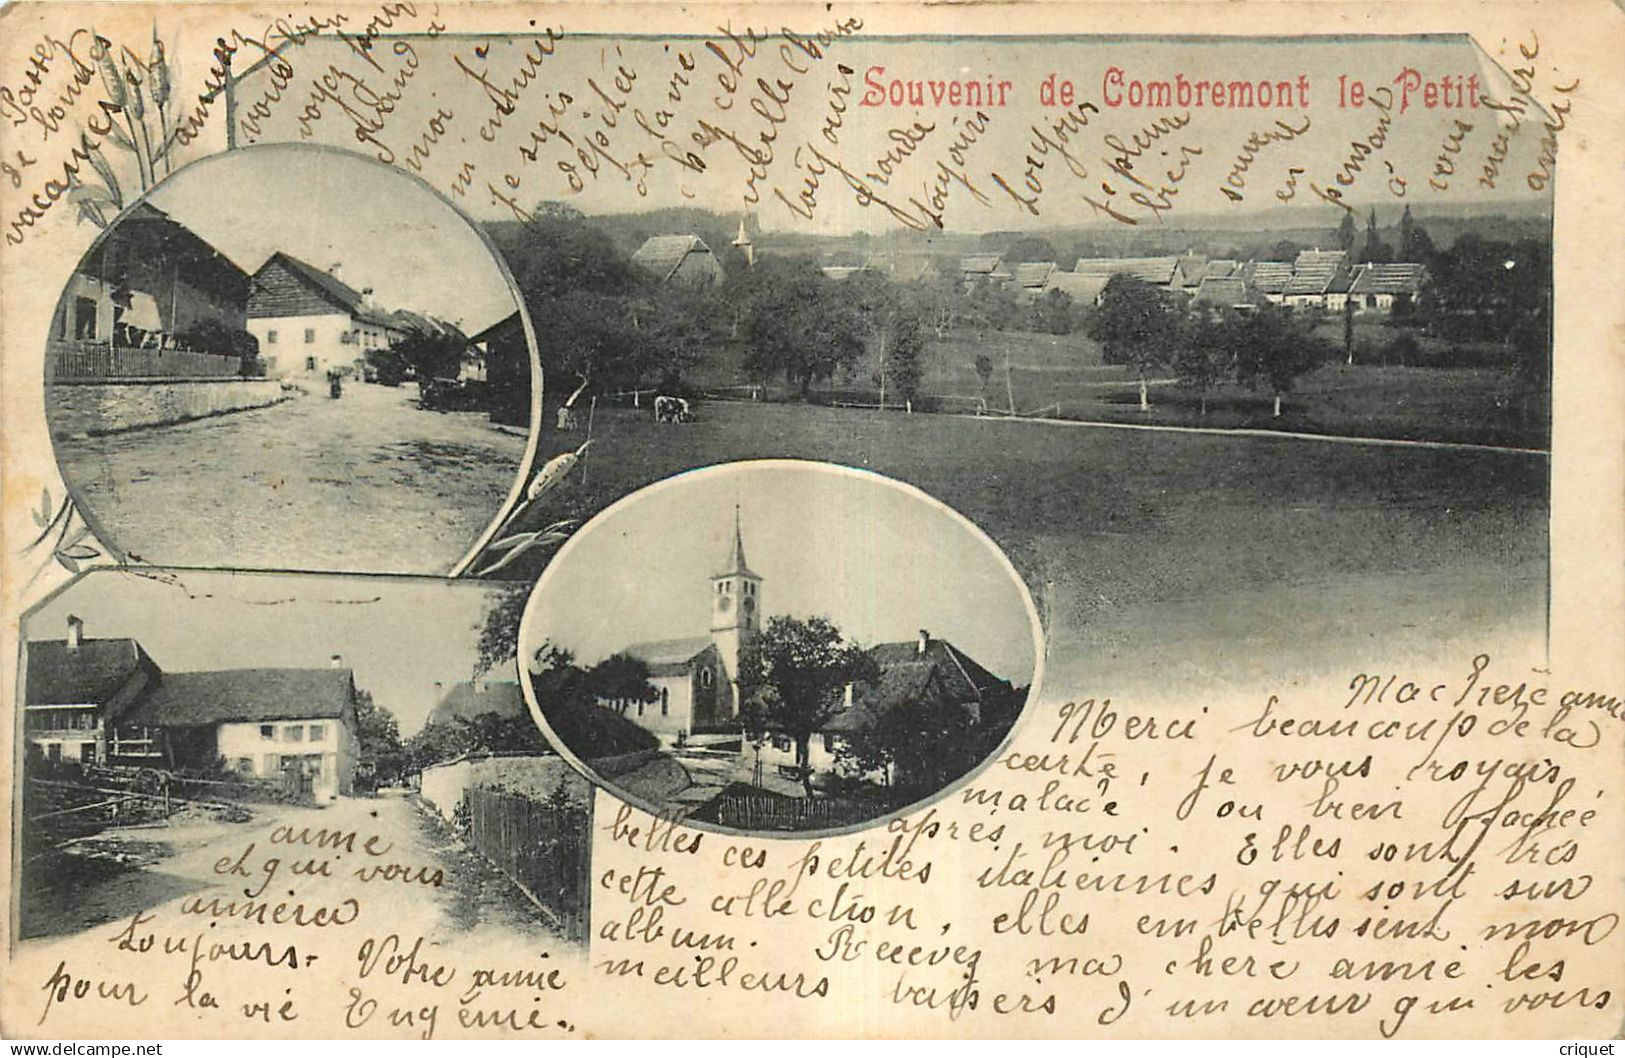 Souvenir de Combremont le Petit
Ma chere amie
Merci beaucoup de la
carte, je vous croyais
malade ou bien fachée
après moi. Elles sont très
belles ces petites italiennes qui sont sur
cette collection, elles embellissent mon
album. Recevez ma chere amie les
meilleurs baisers d'un cœur qui vous
aime
et qui vous
aimera
toujours. Votre amie
pour la vie Eugénie.
Passez
de bonnes
vacances et
amusez
vous bien
voyez pour
quand à
moi je
m'ennuie
je suis
dépitée
de la vie
chez cette
vieille
toujours
gronde
toujours
toujours
je pleure
bien
souvent
en
pensant
à
vous
ma chère
amie
criquet